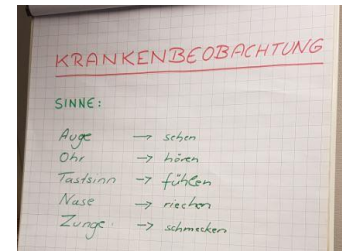 KRANKENBEOBACHTUNG
SINNE:
Auge → sehen
Ohr → hören
Tastsinn → fühlen
Nase → riechen
Zunge → schmecken